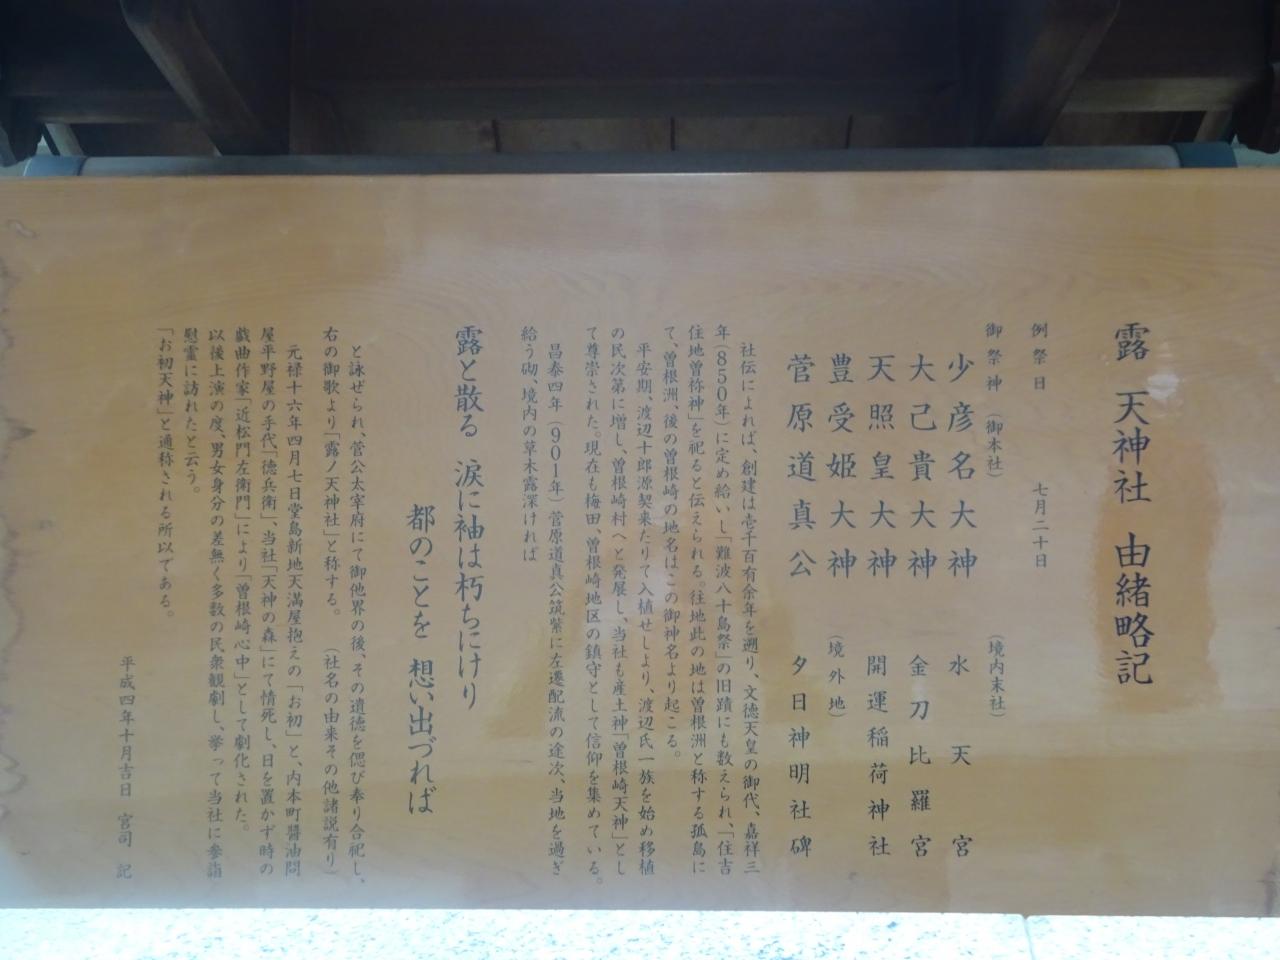 露 天神社 由緒略記
例祭日 七月二十日
御祭神(御本社) (境内末社)
少彦名大神 水天宮
大己貴大神 金刀比羅宮
天照皇大神 開運稲荷神社
豊受姫大神 (境外地)
菅原道真公 夕日神明社碑
社伝によれば、創建は壱千百有余年を遡り、文徳天皇の御代、嘉祥三
年(850年)に定め給いし「難波八十島祭」の旧蹟にも数えられ、「住吉
住地曽祢神」を祀ると伝えられる。往地此の地は曽根洲と称する孤島に
て、曽根洲、後の曽根崎の地名はこの御神名より起こる。
平安期、渡辺十郎源契来たりて入植せしより、渡辺氏一族を始め移植
の民次第に増し、曽根崎村へと発展し、当社も産土神「曽根崎天神」とし
て尊崇された。現在も梅田・曽根崎地区の鎮守として信仰を集めている。
昌泰四年(901年)菅原道真公筑紫に左遷配流の途次、当地を過ぎ
給う砌、境内の草木露深ければ
露と散る 涙に袖は朽ちにけり
都のことを 想い出づれば
と詠ぜられ、菅公太宰府にて御他界の後、その遺徳を偲び奉り合祀し、
右の御歌より「露ノ天神社」と称する。 (社名の由来その他諸説有り)
元禄十六年四月七日堂島新地天満屋抱えの「お初」と、内本町醬油問
屋平野屋の手代「徳兵衛」、当社「天神の森」にて情死し、日を置かず時の
戯曲作家「近松門左衛門」により「曽根崎心中」として劇化された。
以後上演の度、男女身分の差無く多数の民衆観劇し、挙って当社に参詣
慰霊に訪れたと云う。
「お初天神」と通称される所以である。
平成四年十月吉日 宮司 記